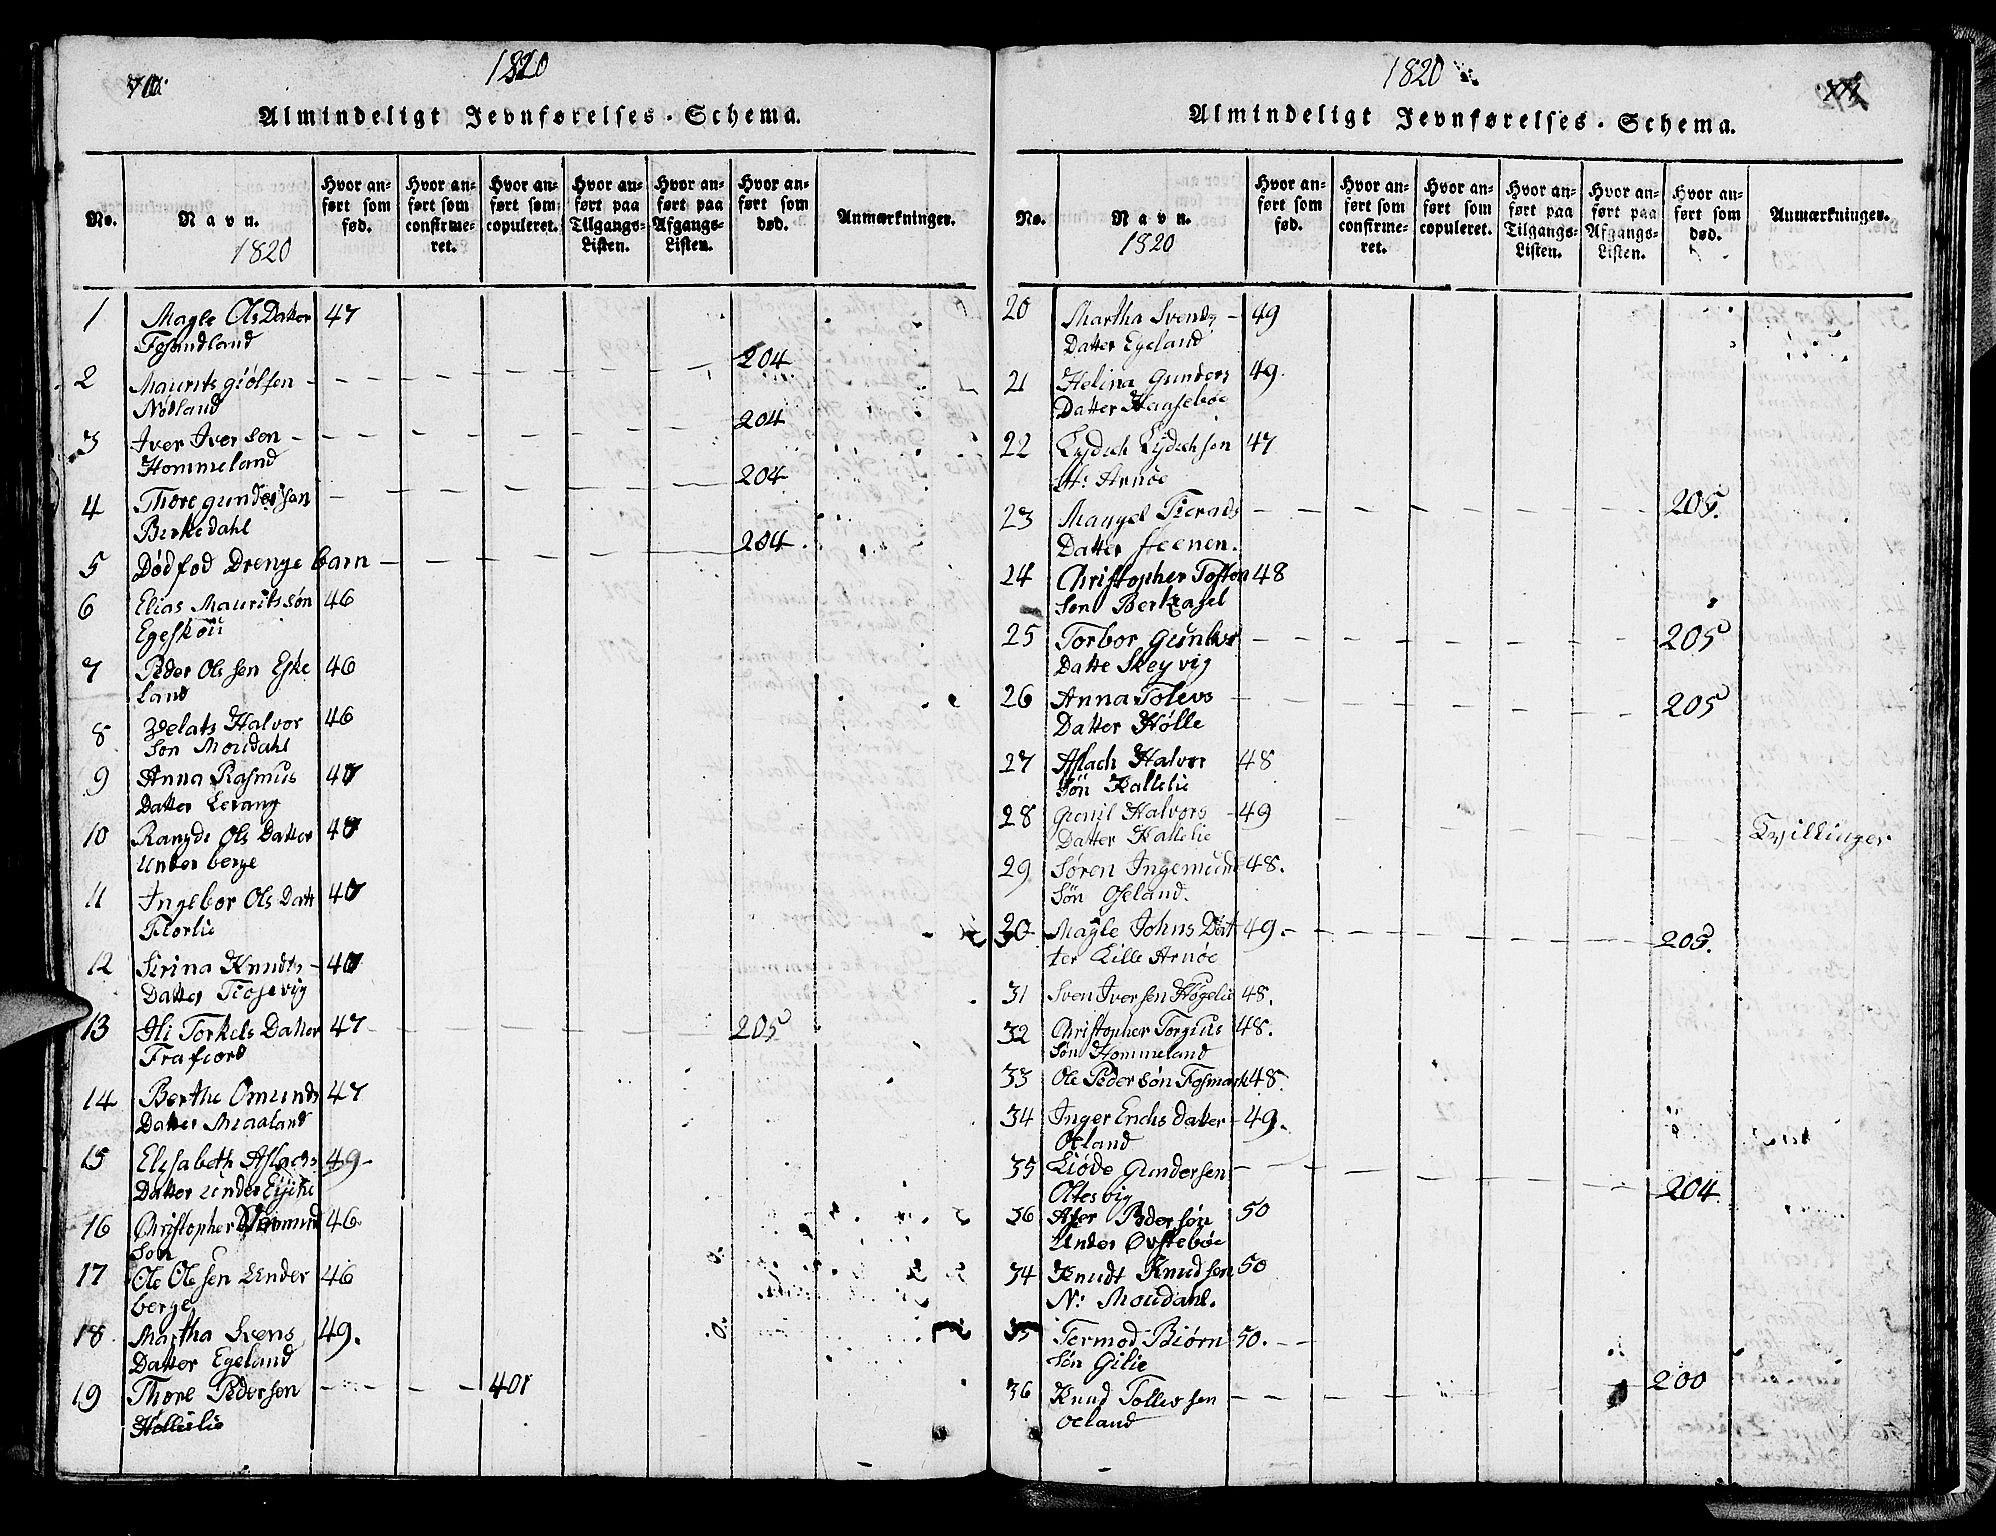 1820
Almindeligt Jevnførelses-Schema.
No.
Navn.
1820
Hvor anført som fød.
Hvor anført som confirmeret.
Hvor anført som copuleret.
Hvor anført paa Tilgangs-Listen.
Hvor anført paa Afgangs-Listen.
Hvor anført som død.
Anmærkninger.
1 Magle Ols Datter 47
Fosandland
204
2 Maurits giölsen - - - - - -
Nödland
204
3 Iver Iversen - - - - - -
Hommeland
204
4 Thore gundersen - - - - - -
Birkedahl
204
5 Dödfød Drenge barn - - - - -
6 Elias Mauritssøn 46
Egeskou
7 Peder Olesen Eske 46
land
8 Halvor 46
Søn Moudahl
9 Anna Rasmus 47
Datter Levang
10 Rangde Ols Datter 47
Underberge
11 Ingebor Ols Datt 47
Florlie
12 Sirina Knudts 47
Datter Tiosevig
13 Ili Torkels Datter 47 - - - - - 205
Frafiord
14 Berthe Omunds 47
Datter Maaland
15 Elisabeth Aslachs 49
Datter under Eiehe
16 Christopher 46
Søn
17 Ole Olesen Under 46
berge
18 Martha Svens 49.
Datter Egeland
19 Thore Pedersen - - - 401
Hölleslie
1820
Almindeligt Jevnførelses-Schema.
No.
Navn.
1820
Hvor anført som fød.
Hvor anført som confirmeret.
Hvor anført som copuleret.
Hvor anført paa Tilgangs-Listen.
Hvor anført paa Afgangs-Listen.
Hvor anført som død.
Anmærkninger.
20 Martha Svends 49
Datter Egeland
21 Helina Gunders 49.
Datter Haaseböe
22 Eydich Eydichsen 47
St: Arnöe
23 Mangel Tierads - - - - - 205.
Datter Steenen.
24 Christopher Tosten 48
Søn Berkasel
25 Torbor Gunders - - - - - 205
Datte Skeyvig
26 Anna Tolevs - - - - - 205
Datter Hølle
27 Aslach Halvor 48
Søn Hallelie
28 Gunil Halvors 49
Datter Hallelie
Tvillinger
29 Søren Ingemund 48.
Søn Oseland.
30 Magle Johns Dat 49. - - - - - 205.
ter Lille Arnöe
31 Sven Iversen Høgelie 48.
32 Christopher Torgius 48.
Søn Hommeland
33 Ole Pedersøn Fosmark 48.
34 Inger Erichs Datter 49.
Oeland
35 Liöde Gundersen - - - - -
Oltesvig 204
36 Aser Pedersøn 50
Under Øvsteböe
34 Knudt Knudsen 50
N: Moudahl.
35 Tormod Biørn 50.
søn Gilie
200
36 Knud Tollevsen - - - - -
Oeland